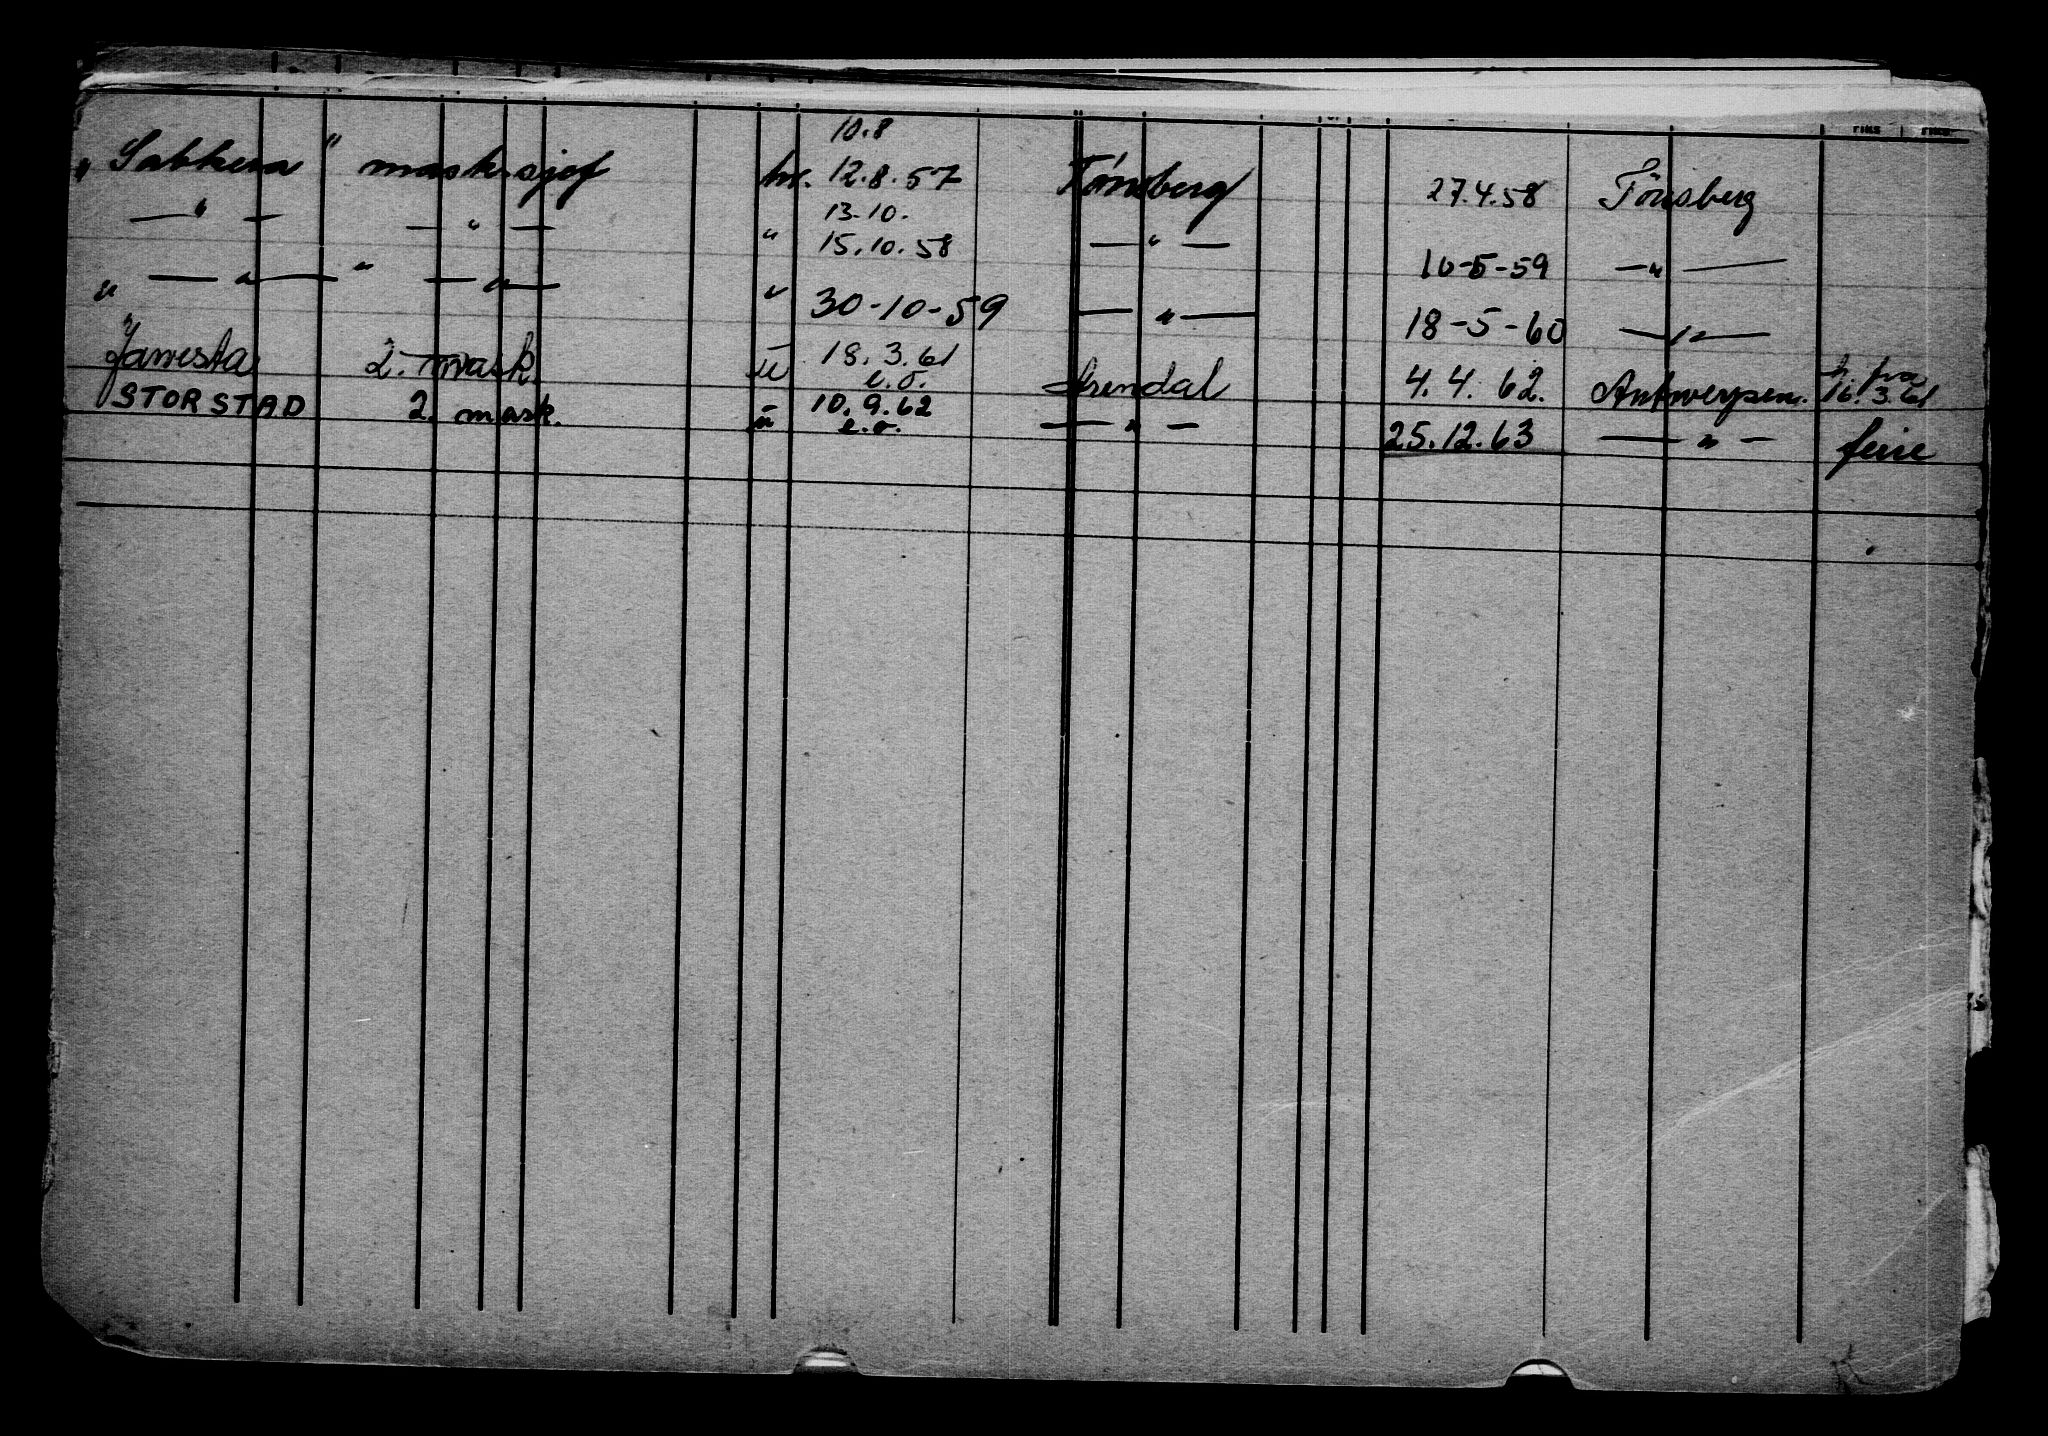 10.8
" Sabkera " mask.sjef hr. 12.8.57 Tønsberg 27.4.58 Tönsberg
— " — — " — " 13.10. 15.10.58 — " — 16-5-59 — " —
" — " — " — " — " 30-10-59 — " — 18-5-60 — " —
Janesta 2. mask. u 18.3.61 e.o. Arendal 4.4.62. Antwerpen. h. fra 16.3.61
STORSTAD 2. mask. u 10.9.62 e.o. — " — 25.12.63 — " — ferie